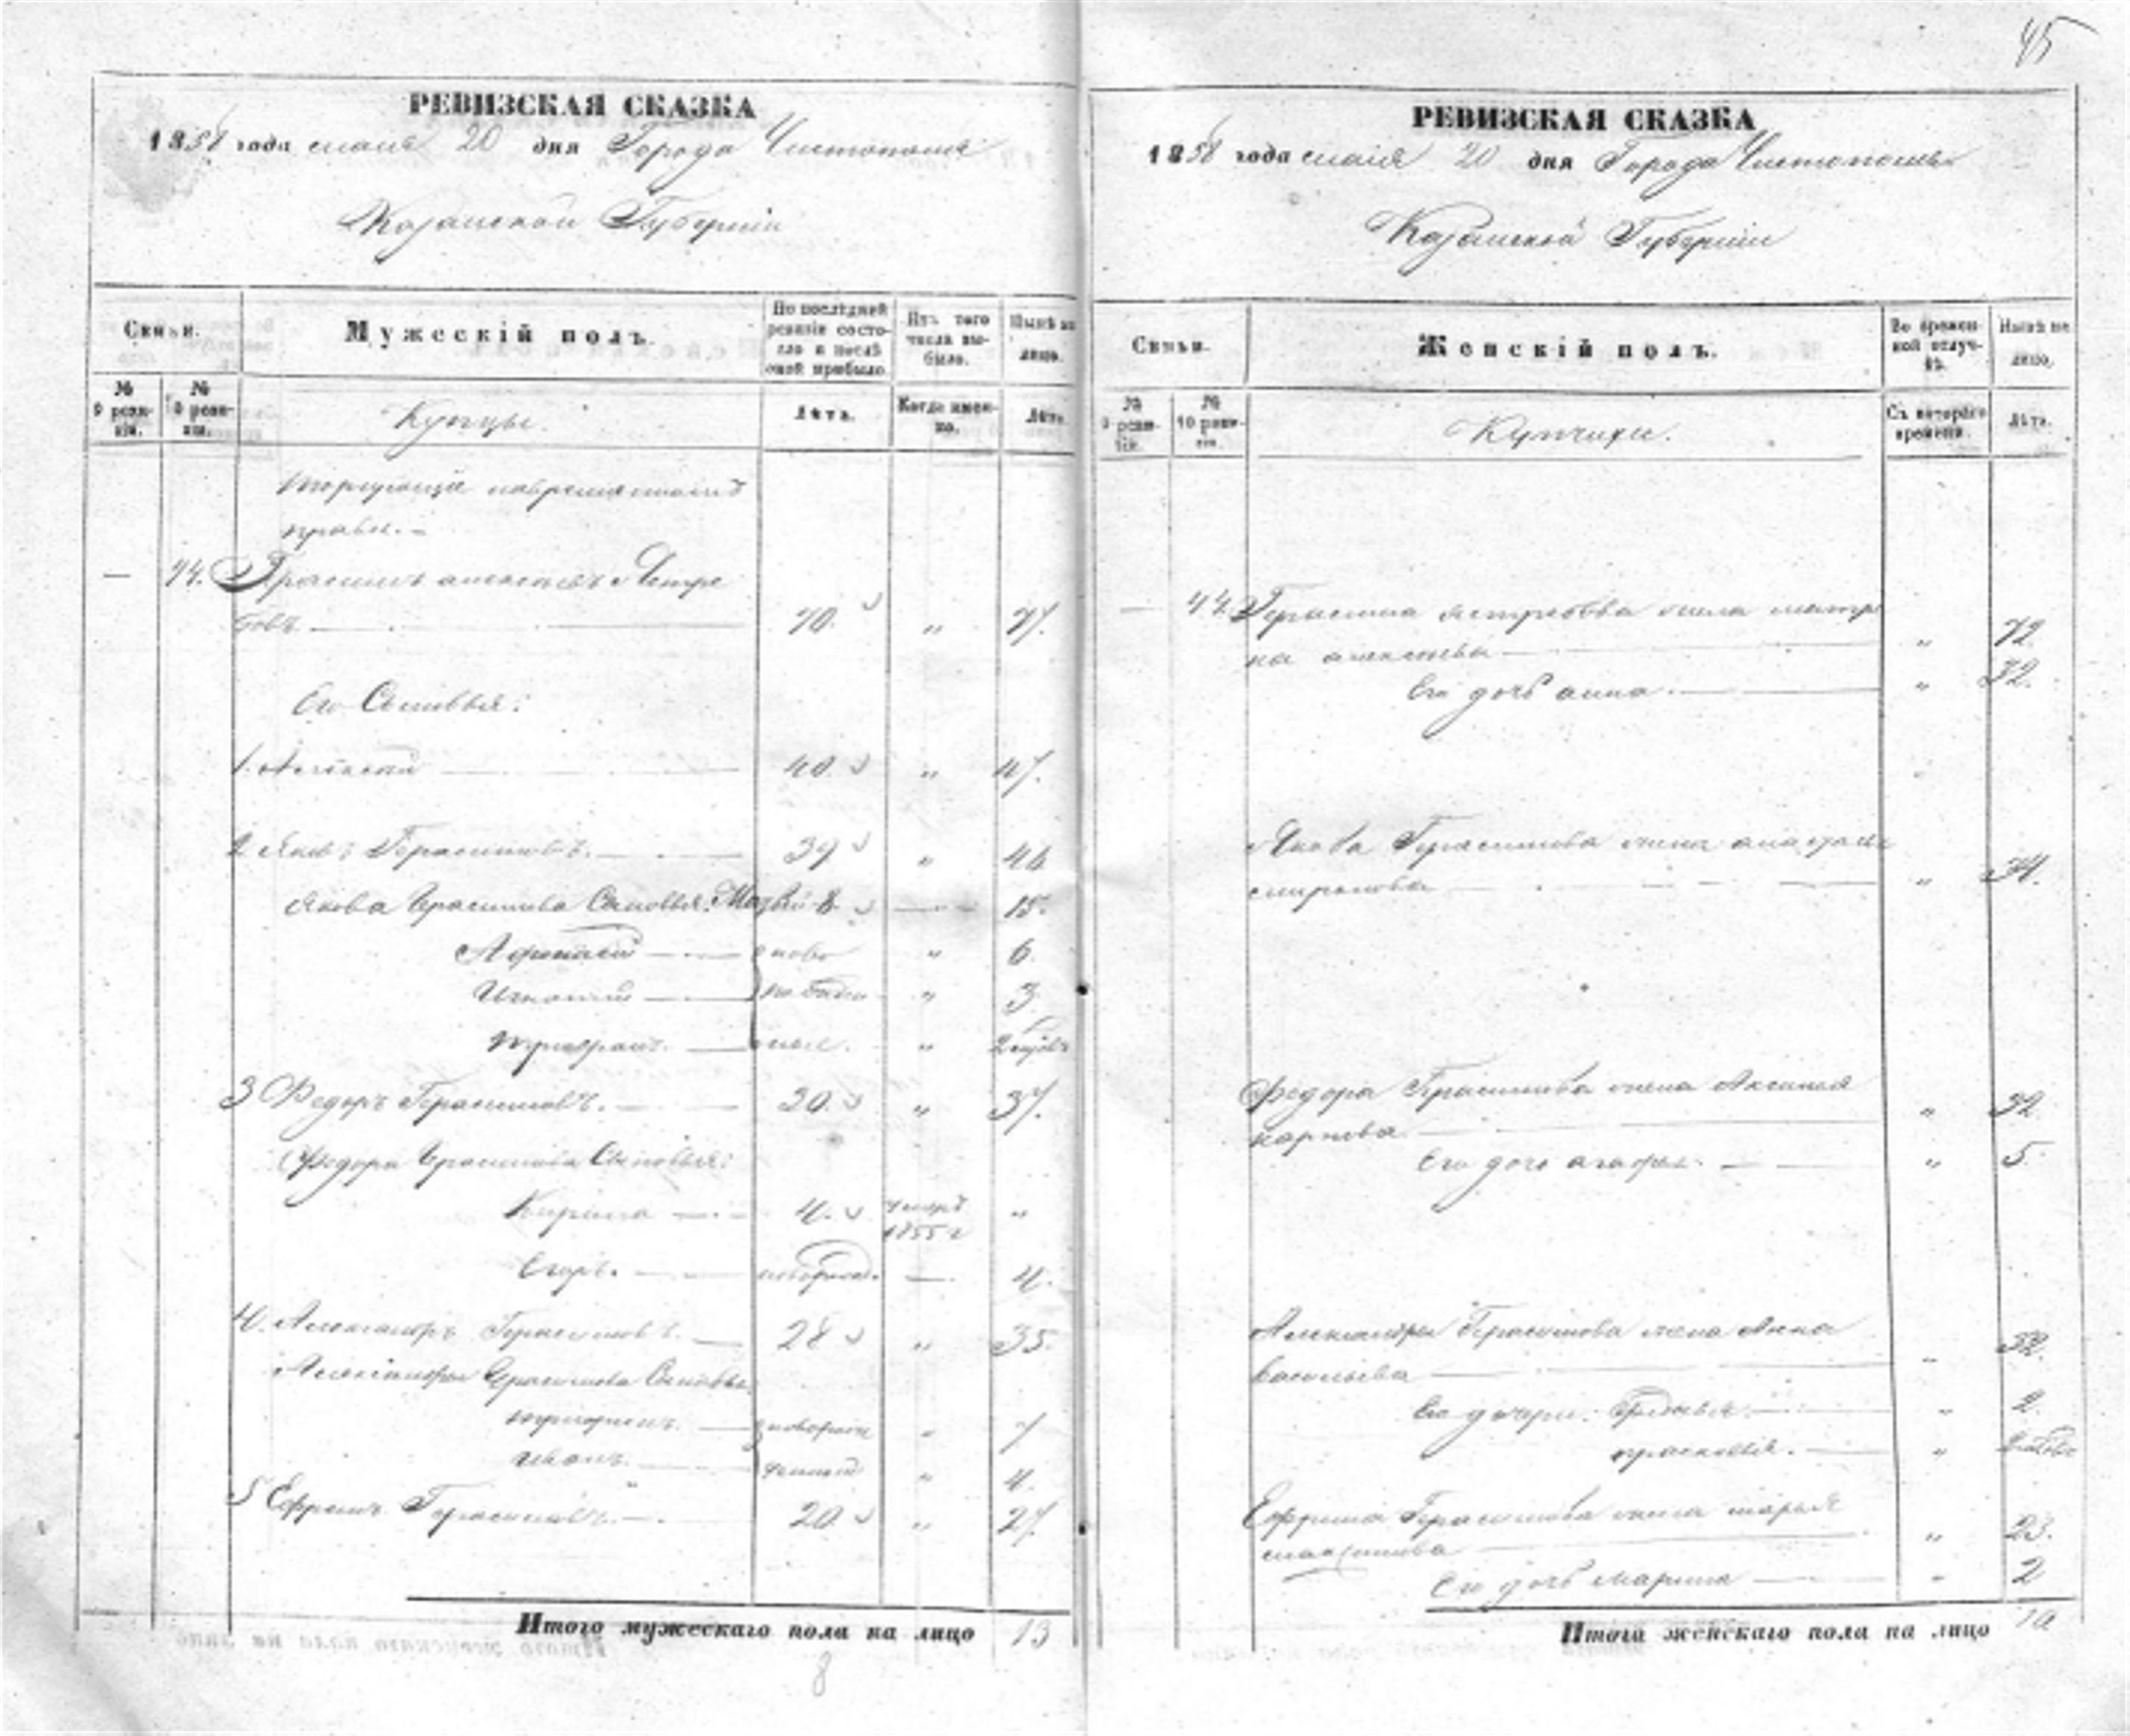 45
РЕВИЗСКАЯ СКАЗКА
1858 года маія 20 дня Города Чистополя
Казанской Губерніи
Семьи.
Мужескій полъ.
По послѣдней ревизіи состояло и послѣ оной прибыло.
Изъ того числа выбыло.
Нынѣ на лицо.
№ 9 ревизіи.
№ 10 ревизіи.
Купцы.
Лѣта.
Когда именно.
Лѣта.
Торгующіе
правѣ.
— 44. Герасимъ Алексѣевъ Ястре
бовъ — 70. " 77.
Его Сыновья:
1. Алексѣй — 40. " 47.
2 Яковъ Герасимовъ. — 39 " 46
Якова Герасимова Сыновья: Матвѣй 8 — 15.
— снова " 6.
Игнатій — " 3
— " 2
3 Федоръ Герасимовъ. — 30. " 37.
Федора Герасимова Сыновья:
Кирила — 4. умеръ 1855 г "
Егоръ. — новорожд. — 4.
4. Александръ Герасимовъ — 28 " 35.
Александра Герасимова Сыновья
Григорій — новорож " 7
Иванъ. — денный " 4.
5 Ефремъ Герасимовъ. — 20. " 27.
Итого мужескаго пола на лицо 13
8
РЕВИЗСКАЯ СКАЗКА
1858 года маія 20 дня Города Чистополя
Казанской Губерніи
Семьи.
Женскій полъ.
Во временной отлучкѣ.
Нынѣ на лицо.
№ 9 ревизіи.
№ 10 ревизіи.
Купчихи.
Съ котораго времени.
Лѣта.
— 44. Герасима Ястребова жена Матре
на Алексѣева — " 72.
Его дочь Анна. — " 32.
Якова Герасимова жена Анастасья
Миронова — " 34.
Федора Герасимова жена Аксинья
Карпова — " 32.
Его дочь Агафья. — " 5.
Александра Герасимова жена Анна
Васильева — " 32.
Его дочери: — " 2.
Прасковья. — "
Ефрема Герасимова жена Марья
Максимова — " 23.
Его дочь Марина — " 2
Итого женскаго пола на лицо 10